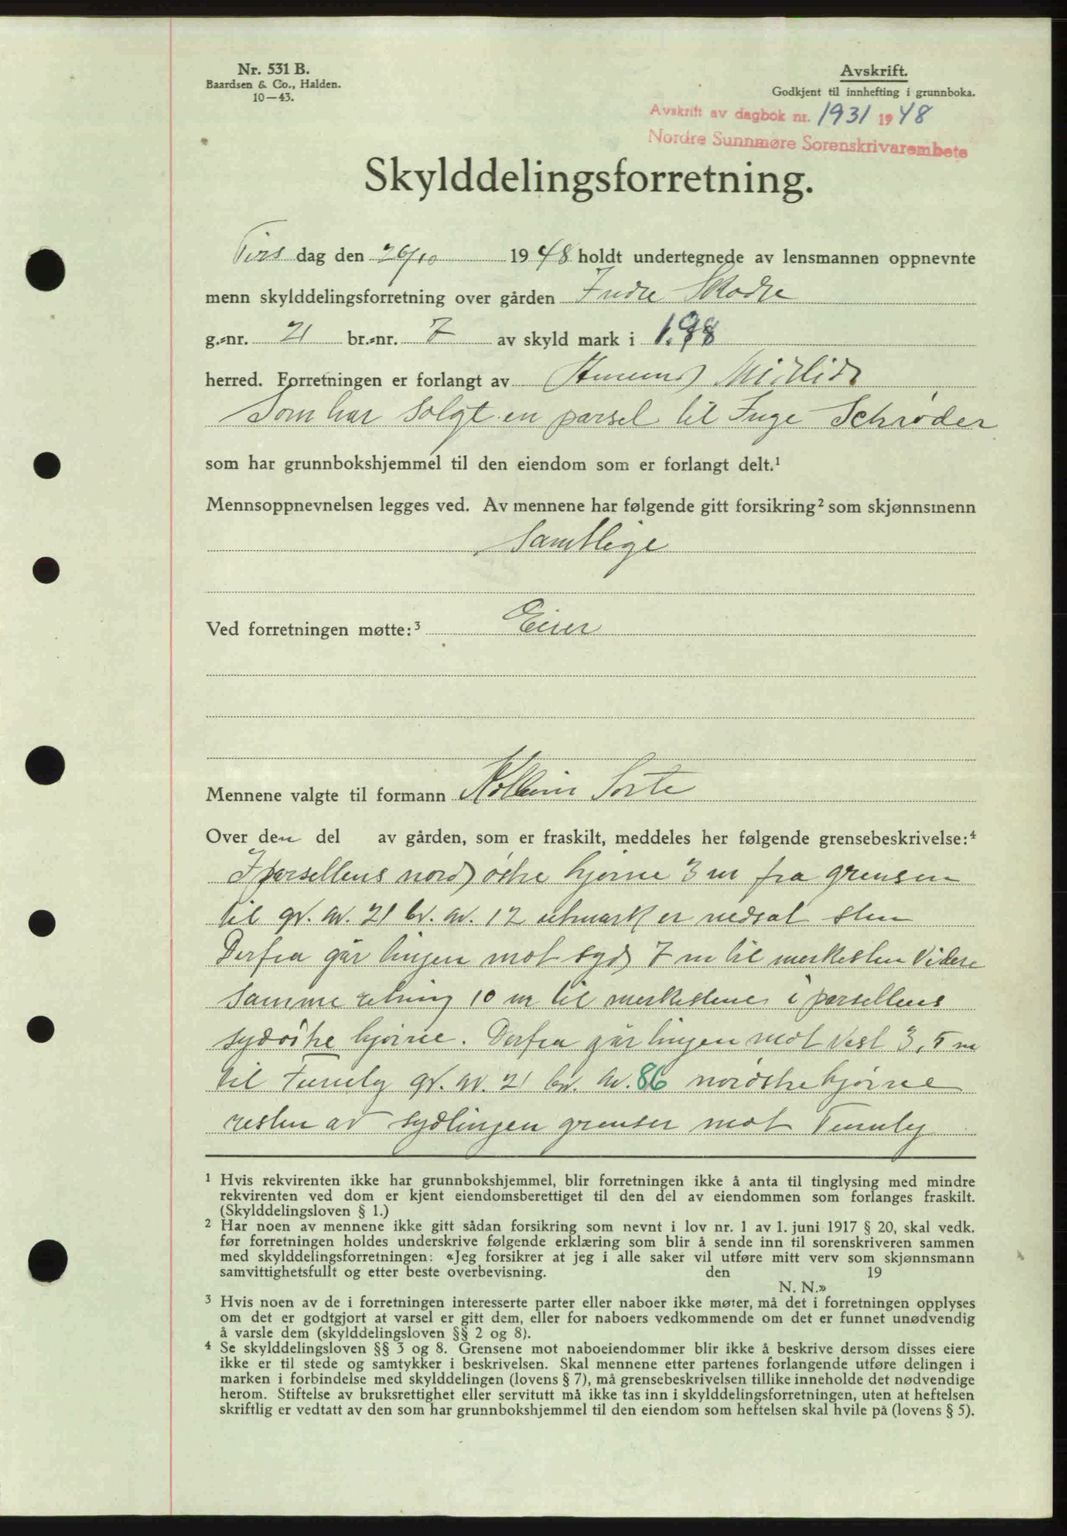 Nr. 531 B.
Baardsen & Co., Halden.
10—43.
Avskrift.
Godkjent til innhefting i grunnboka.
Avskrift av dagbok nr. 1931 1948
Nordre Sunnmøre Sorenskrivarembete
Skylddelingsforretning.
Tirs dag den 26/10 1948 holdt undertegnede av lensmannen oppnevnte
menn skylddelingsforretning over gården Indre Skodje
g.-nr. 21 br.-nr. 7 av skyld mark i 1.98
herred. Forretningen er forlangt av Midtlid
Som har solgt en parsel til Inge Schrøder
som har grunnbokshjemmel til den eiendom som er forlangt delt.¹
Mennsoppnevnelsen legges ved. Av mennene har følgende gitt forsikring² som skjønnsmenn
Samtlige
Ved forretningen møtte:³ Eier
Mennene valgte til formann Sorte
Over den del av gården, som er fraskilt, meddeles her følgende grensebeskrivelse:⁴
I parsellens nord østre hjørne 3 m fra grensen
til gr. nr. 21 br. nr. 12 utmark er nedsat sten
Derfra går linjen mot syd 7 m til merkesten videre
samme retning 10 m til merkestene i parsellens
sydøstre hjørne. Derfra går linjen mot vest 3,5 m
til Tunely gr. nr. 21 br. nr. 86 nordøstre hjørne
resten av sydlinjen grenser mot Tunely
¹ Hvis rekvirenten ikke har grunnbokshjemmel, blir forretningen ikke å anta til tinglysing med mindre
rekvirenten ved dom er kjent eiendomsberettiget til den del av eiendommen som forlanges fraskilt.
(Skylddelingsloven § 1.)
² Har noen av mennene ikke gitt sådan forsikring som nevnt i lov nr. 1 av 1. juni 1917 § 20, skal vedk.
før forretningen holdes underskrive følgende erklæring som blir å sende inn til sorenskriveren sammen
med skylddelingsforretningen: «Jeg forsikrer at jeg i alle saker vil utføre mitt verv som skjønnsmann
samvittighetsfullt og etter beste overbevisning. den 19
N. N.»
³ Hvis noen av de i forretningen interesserte parter eller naboer ikke møter, må det i forretningen opplyses
om det er godtgjort at varsel er gitt dem, eller for naboers vedkommende om det er funnet unødvendig
å varsle dem (skylddelingsloven §§ 2 og 8).
⁴ Se skylddelingsloven §§ 3 og 8. Grensene mot naboeiendommer blir ikke å beskrive dersom disses eiere
ikke er til stede og samtykker i beskrivelsen. Skal mennene etter partenes forlangende utføre delingen i
marken i forbindelse med skylddelingen (lovens § 7), må grensebeskrivelsen tillike inneholde det nødvendige
herom. Stiftelse av bruksrettighet eller servitutt må ikke tas inn i skylddelingsforretningen, uten at heftelsen
skriftlig er vedtatt av den som har grunnbokshjemmel til den eiendom som heftelsen skal hvile på (lovens § 5).